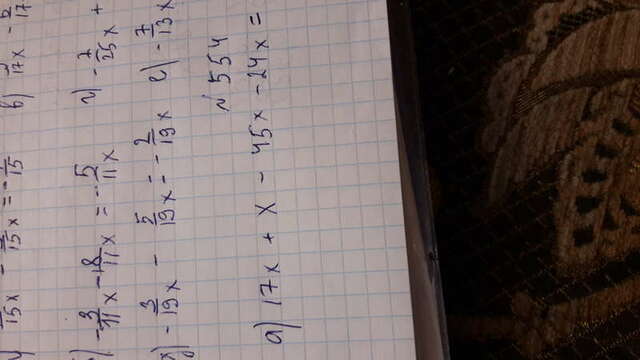 15x 15x = - 15 в) 17x - 17
- 3/11 x - 8/11 x = - 5/11 x г) - 7/25 x +
- 3/19 x - 5/19 x = - 2/19 x е) - 7/13 x
№ 554
а) 17x + x - 45x - 24x =